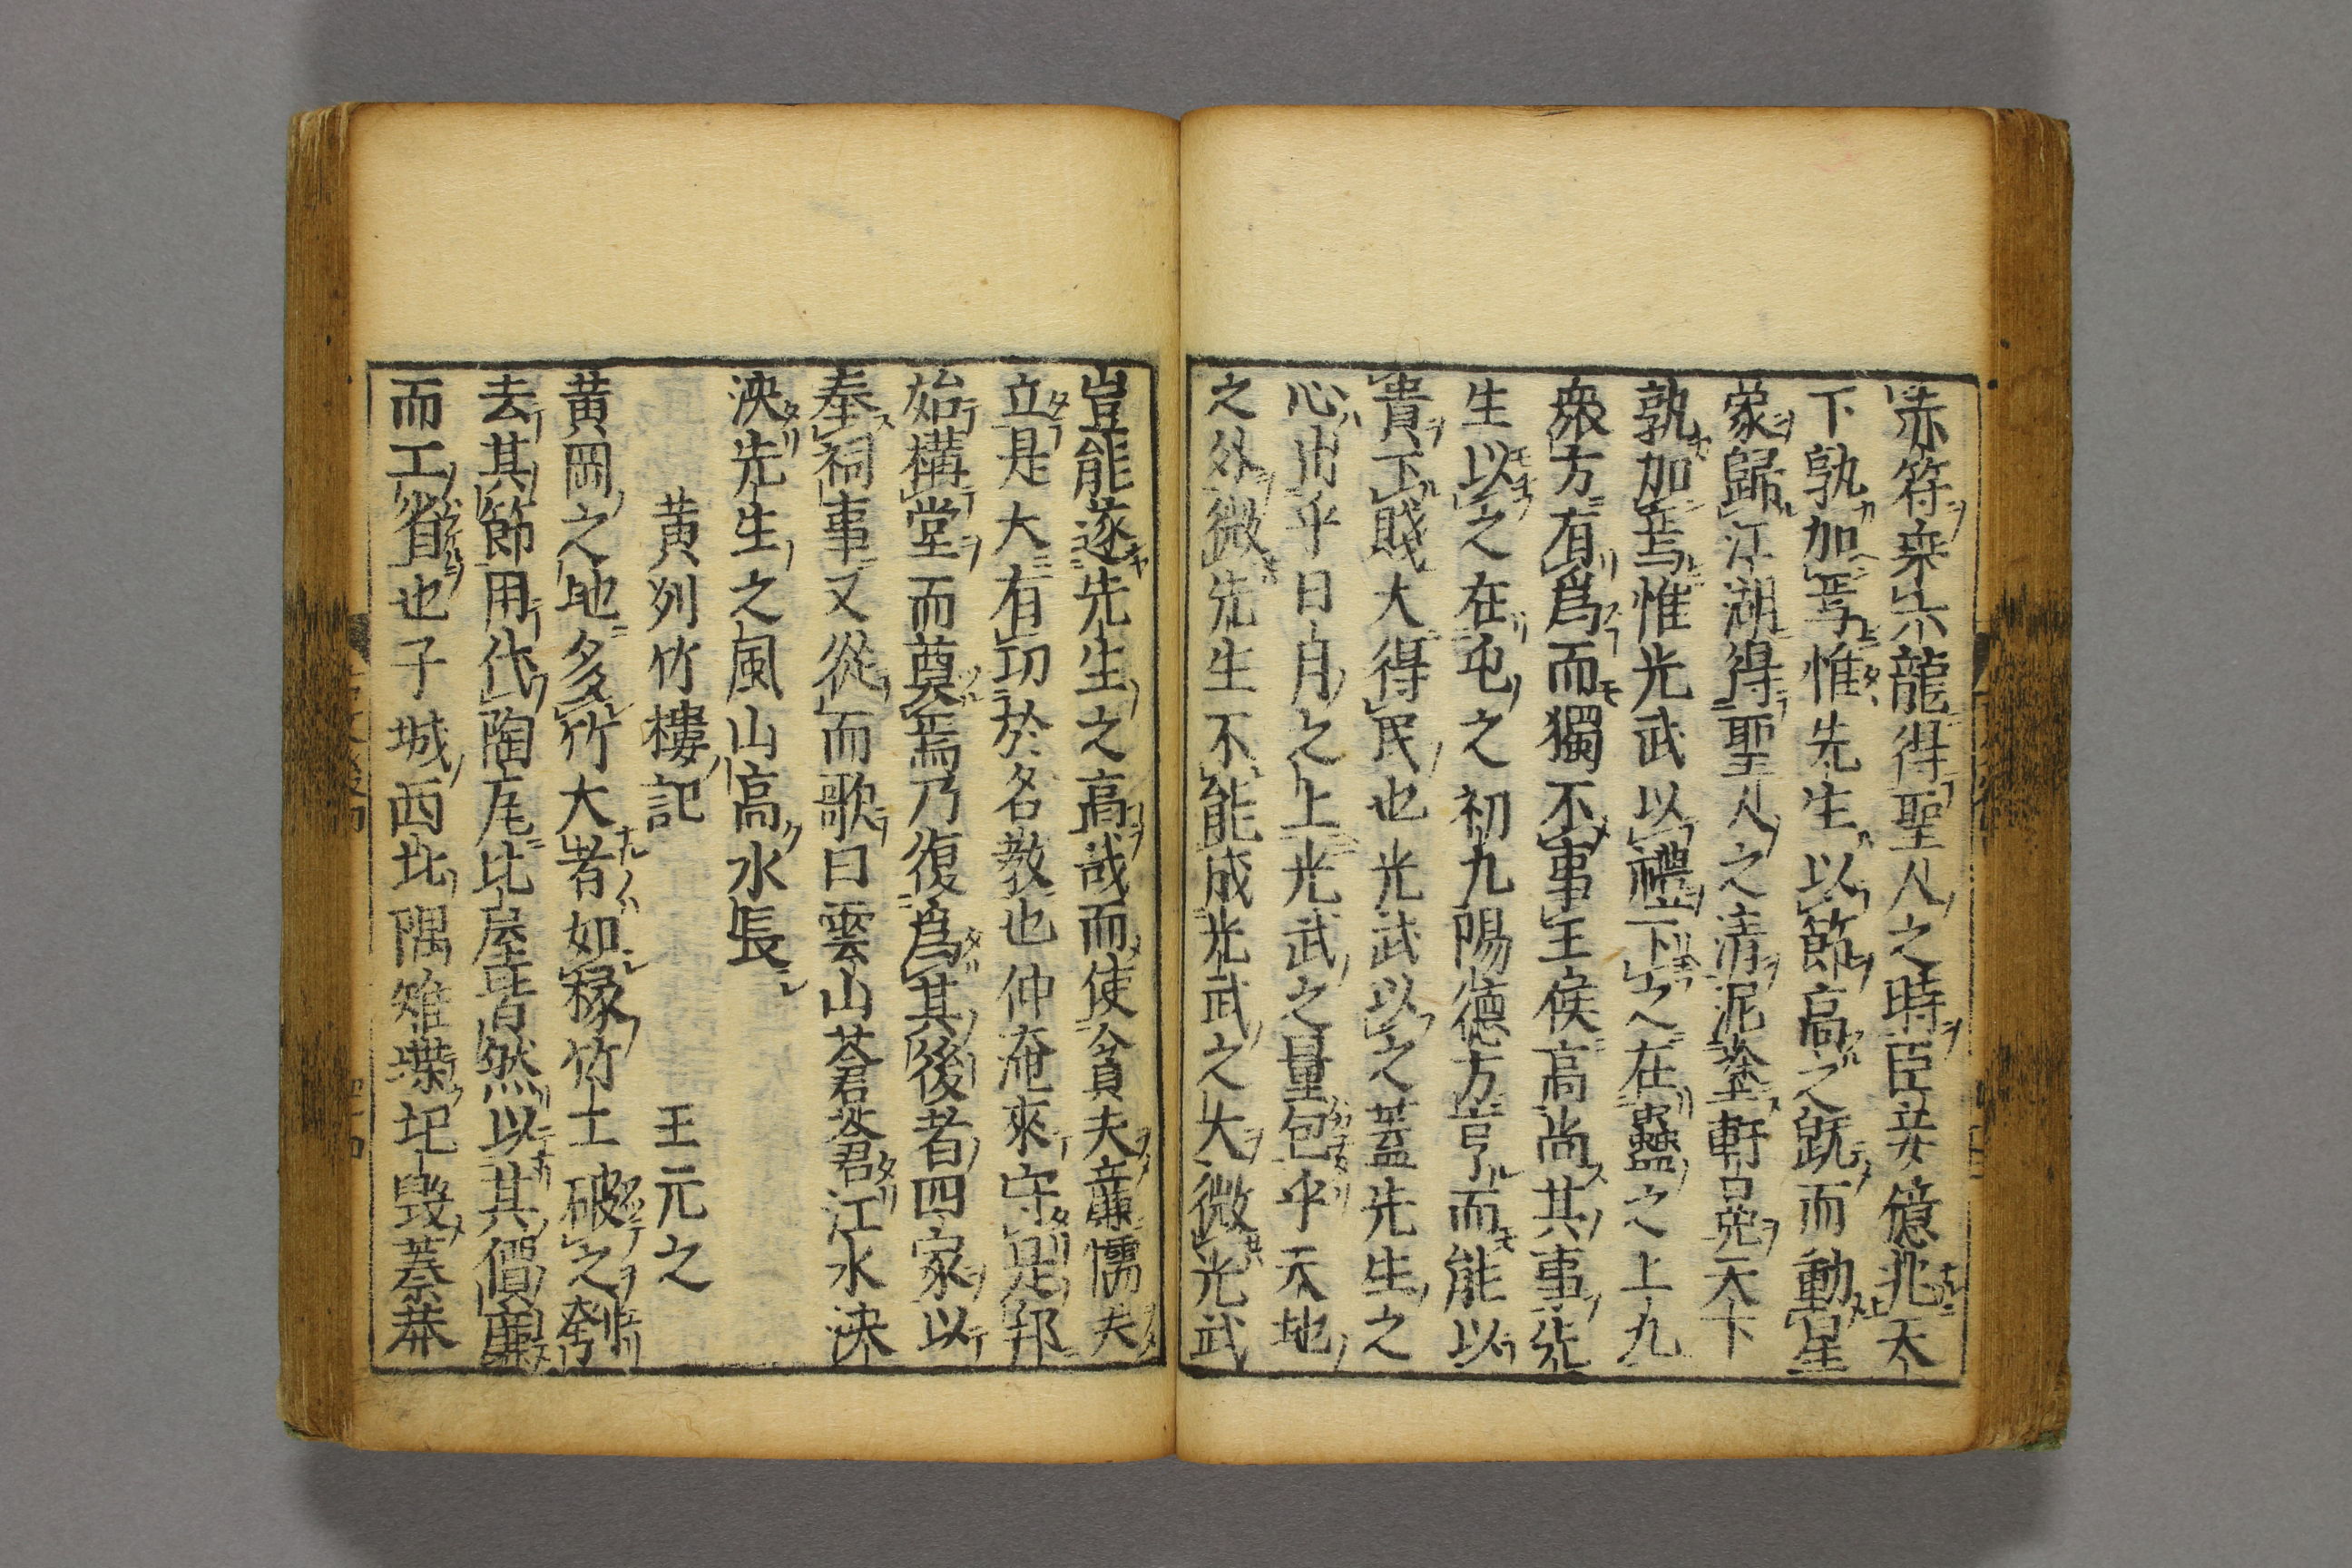 赤符乘六龍得聖人之時臣妾億兆天
下孰加焉惟先生以節高之既而動星
象歸江湖得聖人之清泥塗軒冕天下
孰加焉惟光武以禮下之在蠱之上九
衆方有爲而獨不事王侯高尚其事先
生以之在屯之初九陽德方亨而能以
貴下賤大得民也光武以之蓋先生之
心出乎日月之上光武之量包乎天地
之外微先生不能成光武之大微光武
豈能遂先生之高哉而使貪夫廉懦夫
立是大有功於名教也仲淹來守是邦
始構堂而奠焉乃復爲其後者四家以
奉祠事又從而歌曰雲山蒼蒼江水泱
泱先生之風山高水長
黄列竹樓記 王元之
黄岡之地多竹大者如椽竹工破之刳
去其節用代陶瓦比屋皆然以其價廉
而工省也子城西北隅雉堞圯毀蓁莽